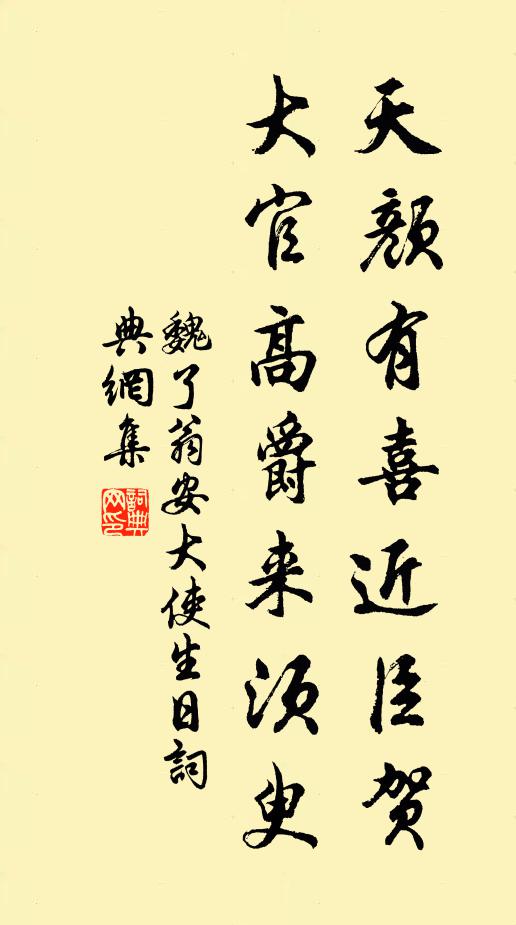 天顏有喜近臣賀
大官高爵来須臾
魏了翁安大使生日詞
典網集
詞典网印